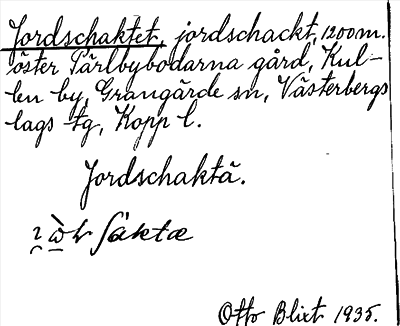 Jordschaktet, jordschackt, 1200 m.
öster Pärlbybodarna gård, Kul-
len by, Grangärde sn, Västerbergs
lags tg, Kopp l.
Jordschaktä.
Otto Blixt 1935.